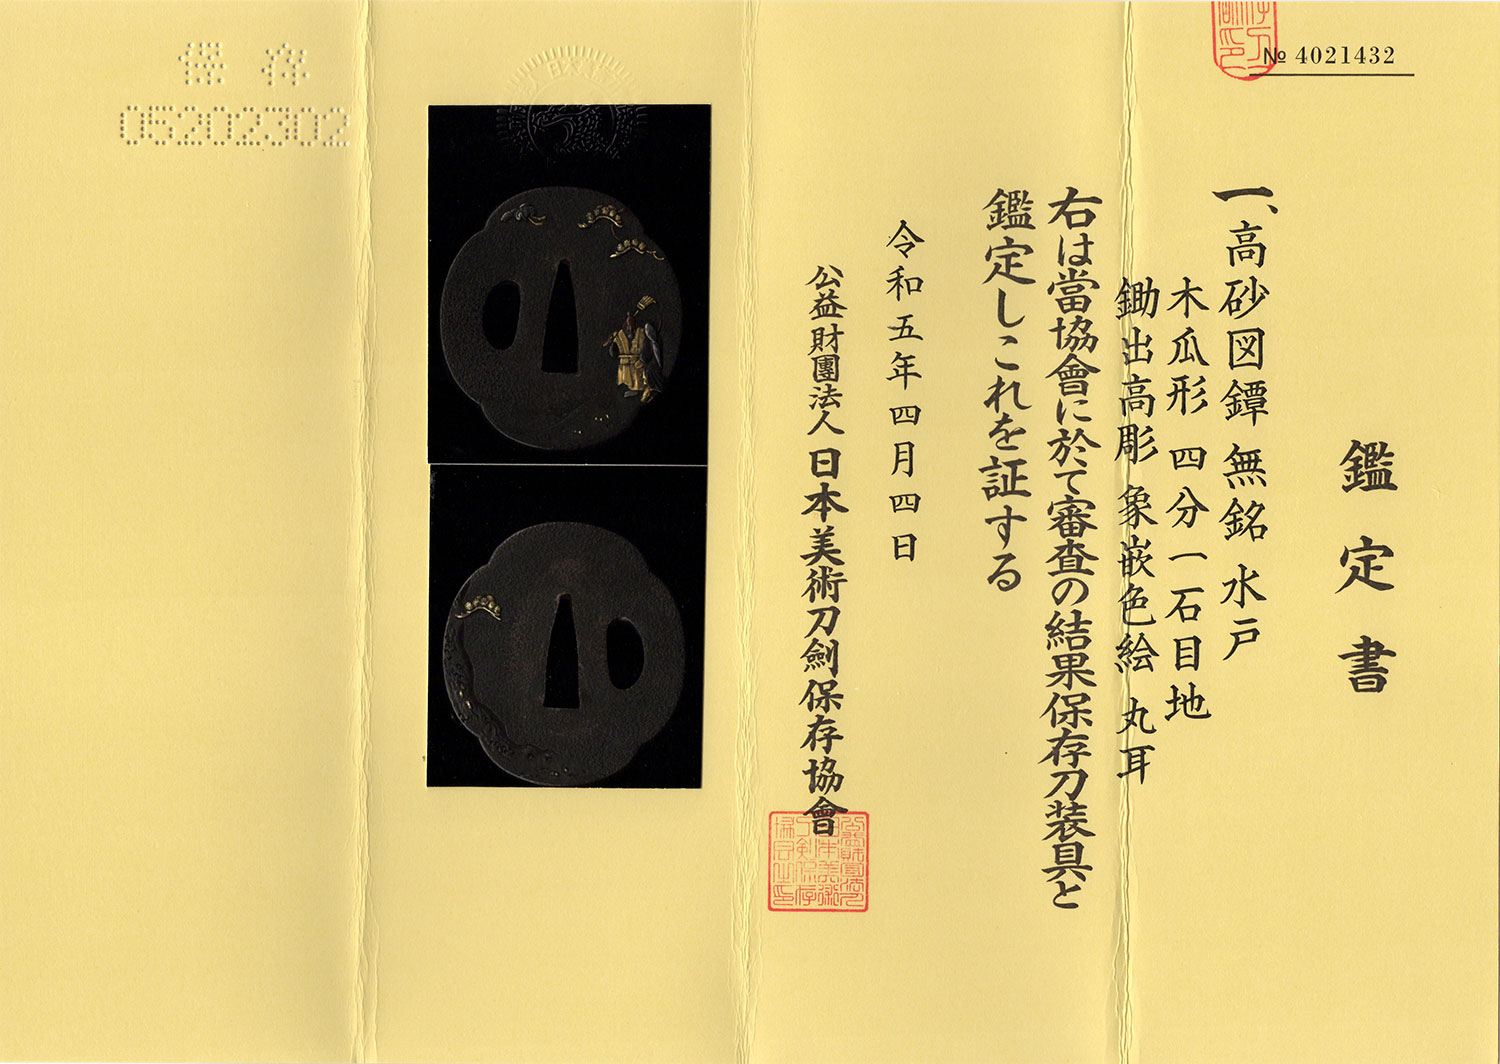 № 4021432
鑑定書
一、高砂図鐔 無銘 水戸
木瓜形 四分一石目地
鋤出高彫 象嵌色絵 丸耳
右は當協會に於て審査の結果保存刀装具と
鑑定しこれを証する
令和五年四月四日
公益財團法人 日本美術刀劍保存協會
保存
05202302